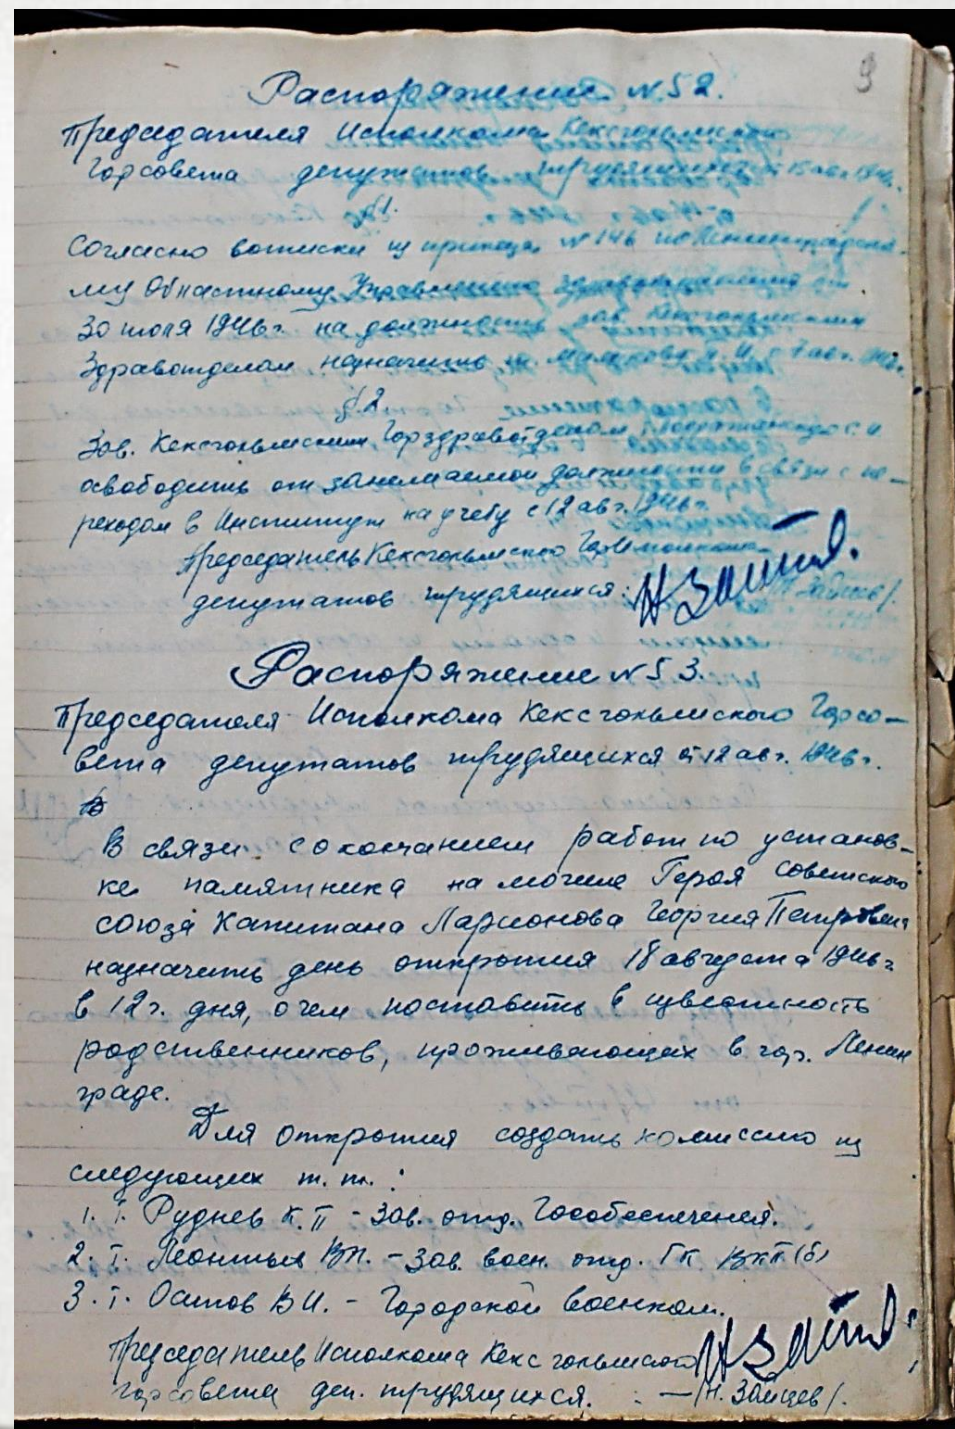 9
Распоряжение № 52.
Председателя Исполкома Кексгольмского
Горсовета депутатов трудящихся от 15 авг. 1946г.
§1.
Согласно выписки из приказа № 146 по Ленинградско-
му Областному Управлению Здравоохранения от
30 июля 1946г. на должность зав. Кексгольмским
Здравотделом назначить т. с 7 авг. 1946г.
§2.
Зав. Кексгольмским Горздравотделом
освободить от занимаемой должности в связи с пе-
реходом в Институт на учебу с 12 авг. 1946г.
Председатель Кексгольмского Горисполкома
депутатов трудящихся: Н Зайцев /Н. Зайцев/.
Распоряжение № 53.
Председателя Исполкома Кексгольмского Горсо-
вета депутатов трудящихся от 12 авг. 1946г.
В связи с окончанием работ по установ-
ке памятника на могиле Героя Советского
Союза Капитана Ларионова Георгия Петровича
назначить день открытия 18 августа 1946г.
в 12 ч. дня, о чем поставить в известность
родственников, проживающих в гор. Ленин
граде.
Для открытия создать комиссию из
следующих т.т.:
1. т. Руднев К.П – Зав. отд. Гособеспечения.
2. т. Леонтьев В.Н. – Зав. воен. отд. ГК ВКП(б)
3. т. Осипов В И. – Городской военком.
Председатель Исполкома Кексгольмского Н Зайцев
горсовета деп. трудящихся. : — /Н. Зайцев/.